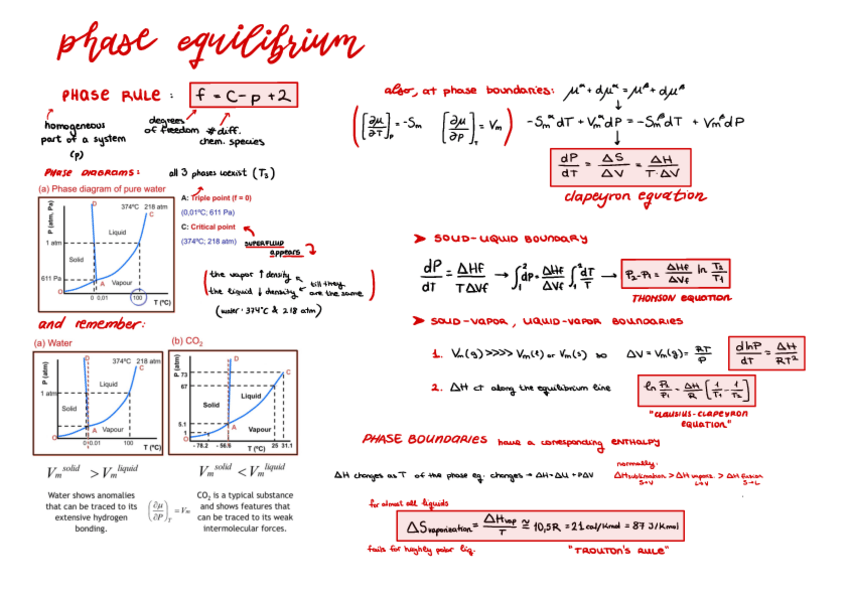 phase equilibrium
PHASE RULE : f = C - p + 2
homogeneous
part of a system
(p)
degrees
of freedom
# diff.
chem. species
PHASE DIAGRAMS:
all 3 phases coexist (T₃)
(a) Phase diagram of pure water
P (atm, Pa)
374ºC 218 atm
D
C
Liquid
1 atm
Solid
611 Pa
A
Vapour
O
0 0,01
100
T (ºC)
A: Triple point (f = 0)
(0,01ºC; 611 Pa)
C: Critical point
(374ºC; 218 atm)
SUPERFLUID
appears
the vapor ↑ density
the liquid ↓ density
till they
are the same
(water: 374°C & 218 atm)
and remember:
(a) Water
P (atm)
374ºC 218 atm
D
C
1 atm
Liquid
Solid
A
Vapour
O
0 0,01
100
T (ºC)
(b) CO₂
P (atm)
D
C
73
67
Liquid
Solid
5.1
1
A
Vapour
O
- 78.2 - 56.6
T (ºC)
25 31.1
Vₘ^solid > Vₘ^liquid
Vₘ^solid < Vₘ^liquid
Water shows anomalies
that can be traced to its
extensive hydrogen
bonding.
(∂μ/∂P)_T = Vm
CO₂ is a typical substance
and shows features that
can be traced to its weak
intermolecular forces.
also, at phase boundaries: μ^α + dμ^α = μ^β + dμ^β
([∂μ/∂T]_P = -Sm [∂μ/∂P]_T = Vm)
-Sm^α dT + Vm^α dP = -Sm^β dT + Vm^β dP
dP/dT = ΔS/ΔV = ΔH/T·ΔV
clapeyron equation
➤ SOLID-LIQUID BOUNDARY
dP/dT = ΔHf/TΔVf → ∫₁² dP = ΔHf/ΔVf ∫₁² dT/T
P₂-P₁ = ΔHf/ΔVf ln T₂/T₁
THOMSON EQUATION
➤ SOLID-VAPOR, LIQUID-VAPOR BOUNDARIES
1. Vm(g) >>>> Vm(l) or Vm(s) so ΔV = Vm(g) = RT/P
dlnP/dT = ΔH/RT²
2. ΔH ct along the equilibrium line
ln P₂/P₁ = ΔH/R [1/T₁ - 1/T₂]
"CLAUSIUS-CLAPEYRON
EQUATION"
PHASE BOUNDARIES have a corresponding ENTHALPY
ΔH changes as T of the phase eq. changes → ΔH = ΔU + PΔV
normally:
ΔHsublimation > ΔHvaporiz. > ΔHfusion
S→V L→V S→L
for almost all liquids
ΔSvaporization = ΔHvap/T ≅ 10,5R = 21 cal/Kmol = 87 J/Kmol
fails for highly polar liq.
"TROUTON'S RULE"